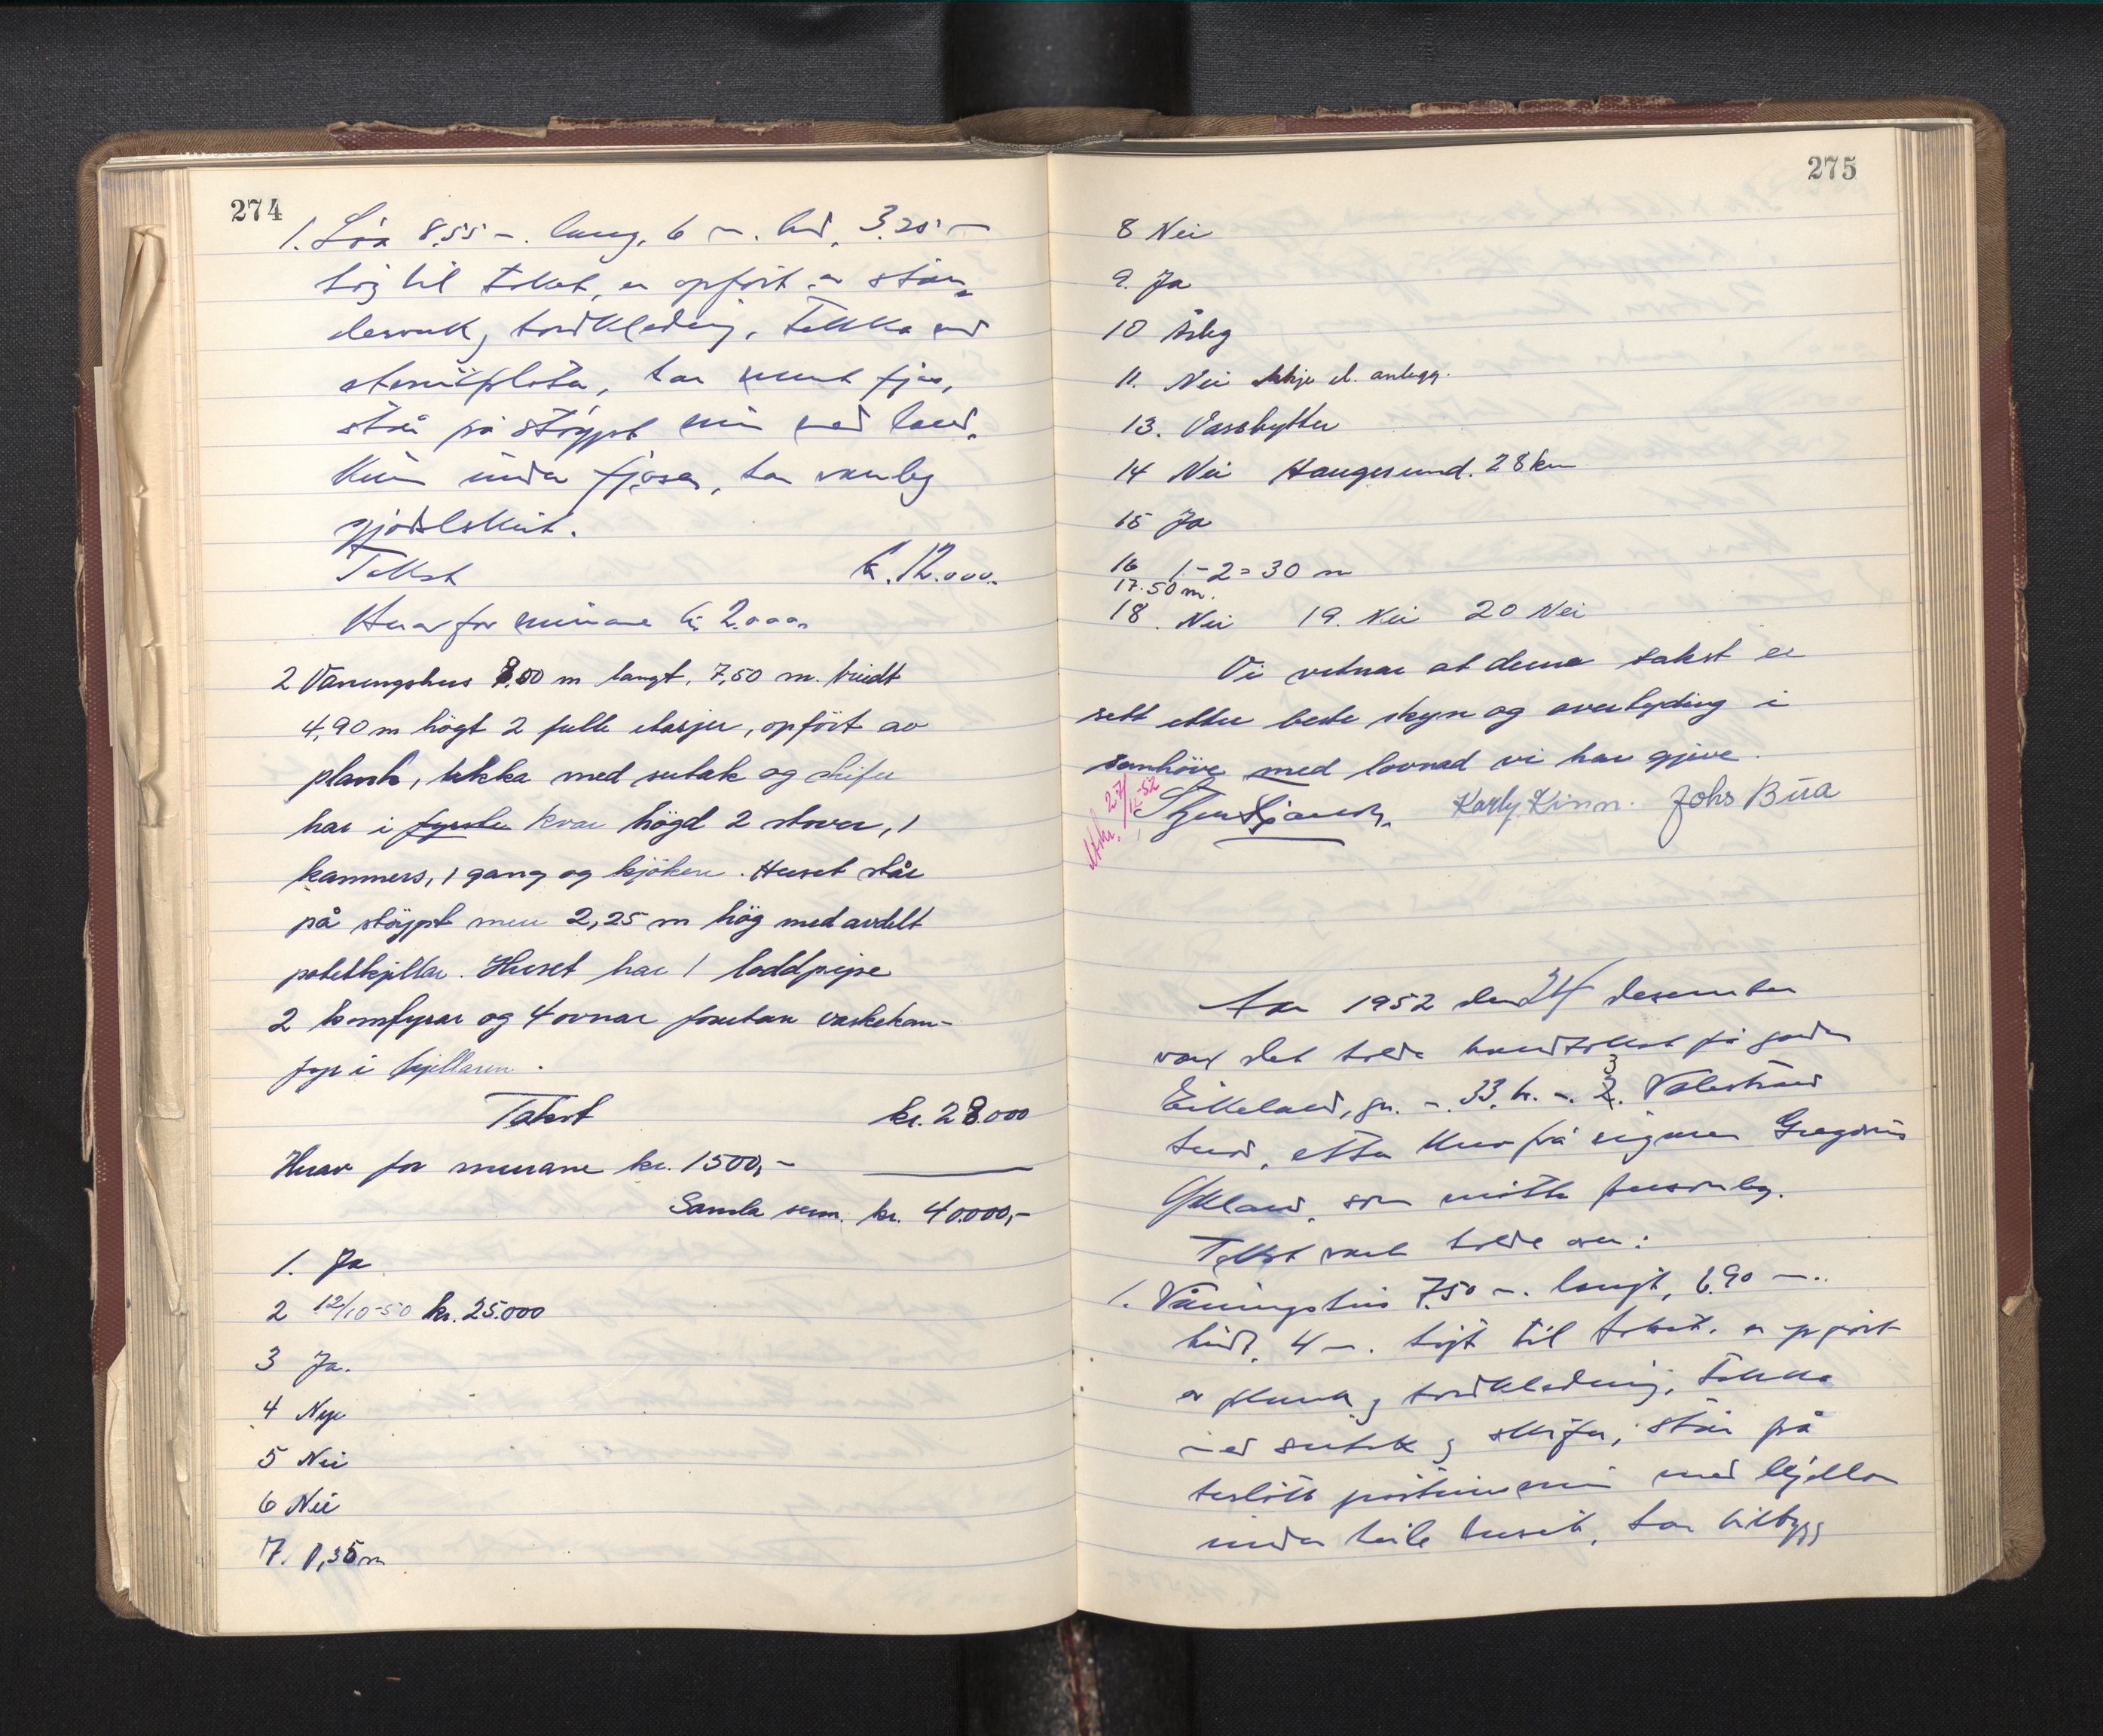 274
1. Löa 8.55 m. lang, 6 m. brd, 3.20 m
høg til taket, er opfört av stan-
derverk og bordkledning, Tekka med
eternitplater, har murt fjøs,
står på støypt mur med land-
kum under fjøsen, har vanleg
gjødselskut.
Takst k. 12.000.
Herav for murane k. 2.000.
2 Vaningshus 8,50 m langt, 7,50 m. breidt
4,90 m högt 2 fulle etasjer, opfört av
plank, tekka med sutak og skifer
har i fyrste kvar högd 2 stover, 1
kammers, 1 gang og kjöken. Huset står
på støypt mur 2,25 m hög med avdelt
potetkjellar. Huset har 1 loddpipe
2 komfyrar og 4 ovnar foruten vaskekom-
fyr i kjellaren.
Takst kr. 28.000
Herav for murane kr. 1500,-
Samla sum. kr. 40.000,-
1. Ja
2 12/10-50 kr. 25.000
3 Ja.
4 Nye
5 Nei
6 Nei
7. 0,35 m
275
8 Nei
9. Ja
10 Årleg
11. Nei ikkje el. anlegg.
13. Vassbytter
14 Nei Haugesund. 28 km
15 Ja
16 1-2=30 m
17. 50 m.
18. Nei 19. Nei 20 Nei
Vi vitnar at denne takst er
sett etter beste skyn og overtyding i
samhöve med lovnad vi har gjeve.
27/12-52
Karly Kinn. Johs Bua
Aar 1952 den 24 desember
vart det halde brandtakst på garden
Eikeland, gr. n. 33, br. n. 2. 3 Valestrand
herad, etter krav frå eigaren Gregorius
Økland, som møtte personleg.
Takst vart halde over:
1. Våningshus 7.50 m. langt, 6.90 m.
breidt, 4 m. høgt til taket, er oppført
av plank og bordkledning, Tekka
med sutak og skifer, står på
teslått gråsteinsmur med kjellar
under heile huset, har tilbygg